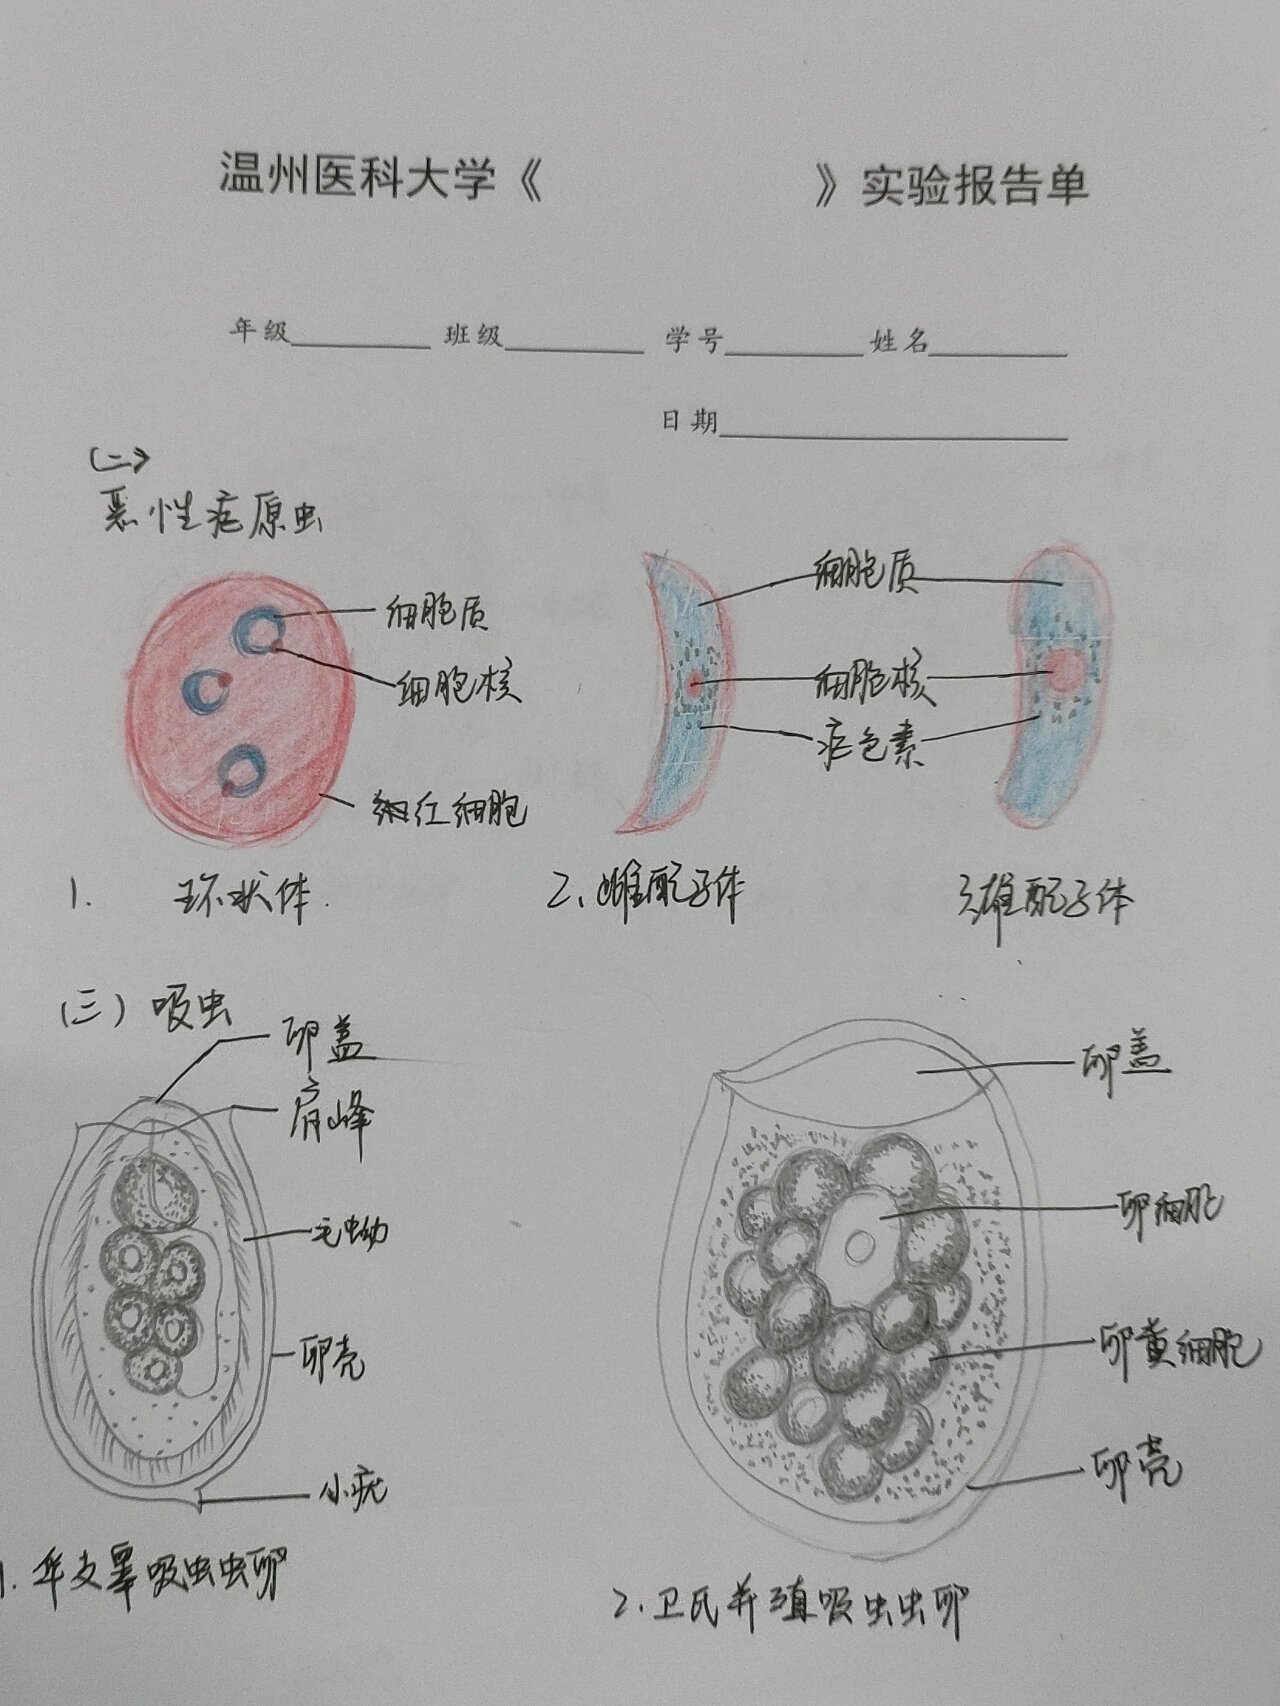 温州医科大学《 》实验报告单
年级 班级 学号 姓名
日期
(二)
恶性疟原虫
细胞质
细胞核
红细胞
1. 环状体.
细胞质
细胞核
疟色素
2、雌配子体
3雄配子体
(三) 吸虫
卵盖
肩峰
毛蚴
卵壳
小疣
1. 华支睾吸虫虫卵
卵盖
卵细胞
卵黄细胞
卵壳
2. 卫氏并殖吸虫虫卵